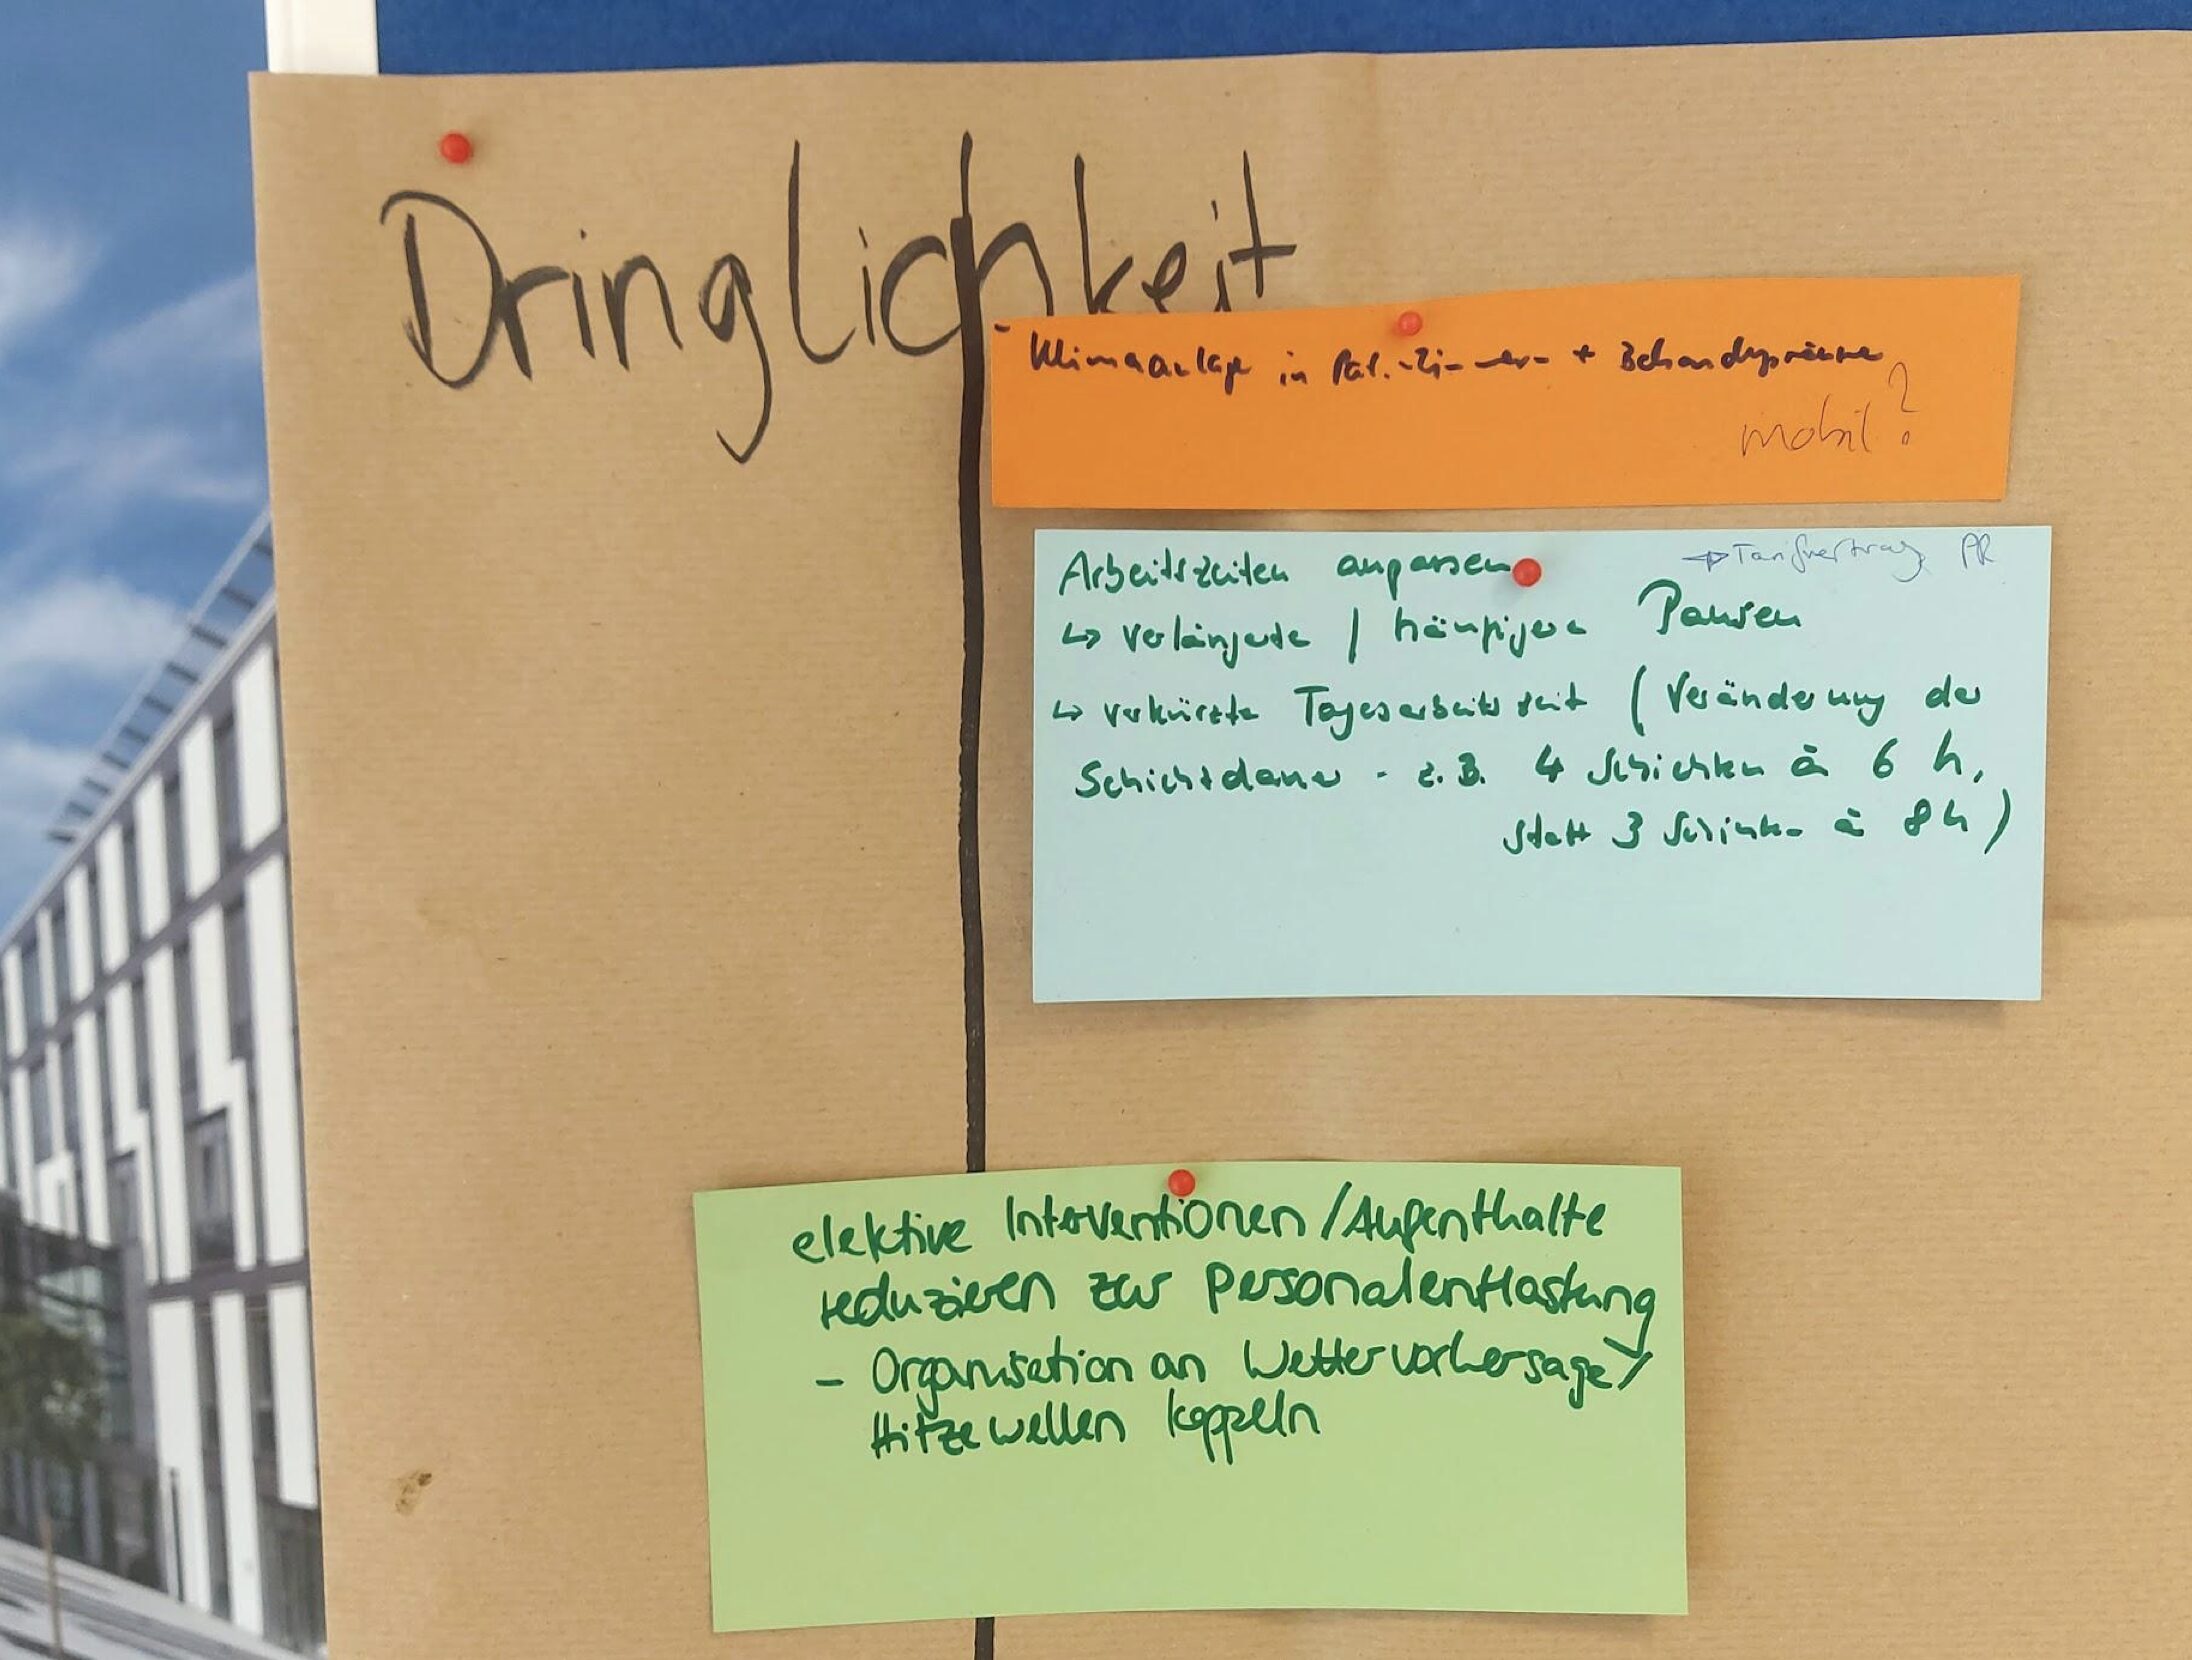 Dringlichkeit
- Klimaanlage in Pat.-Zimmern + Behandlungsräume
mobil?
Arbeitszeiten anpassen → Tarifvertrag PR
↳ verlängerte / häufigere Pausen
↳ verkürzte Tagesarbeitszeit (Veränderung der
Schichtdauer - z.B. 4 Schichten à 6 h,
statt 3 Schichten à 8h)
elektive Interventionen / Aufenthalte
reduzieren zur Personalentlastung
- Organisation an Wettervorhersage/
Hitzewellen koppeln